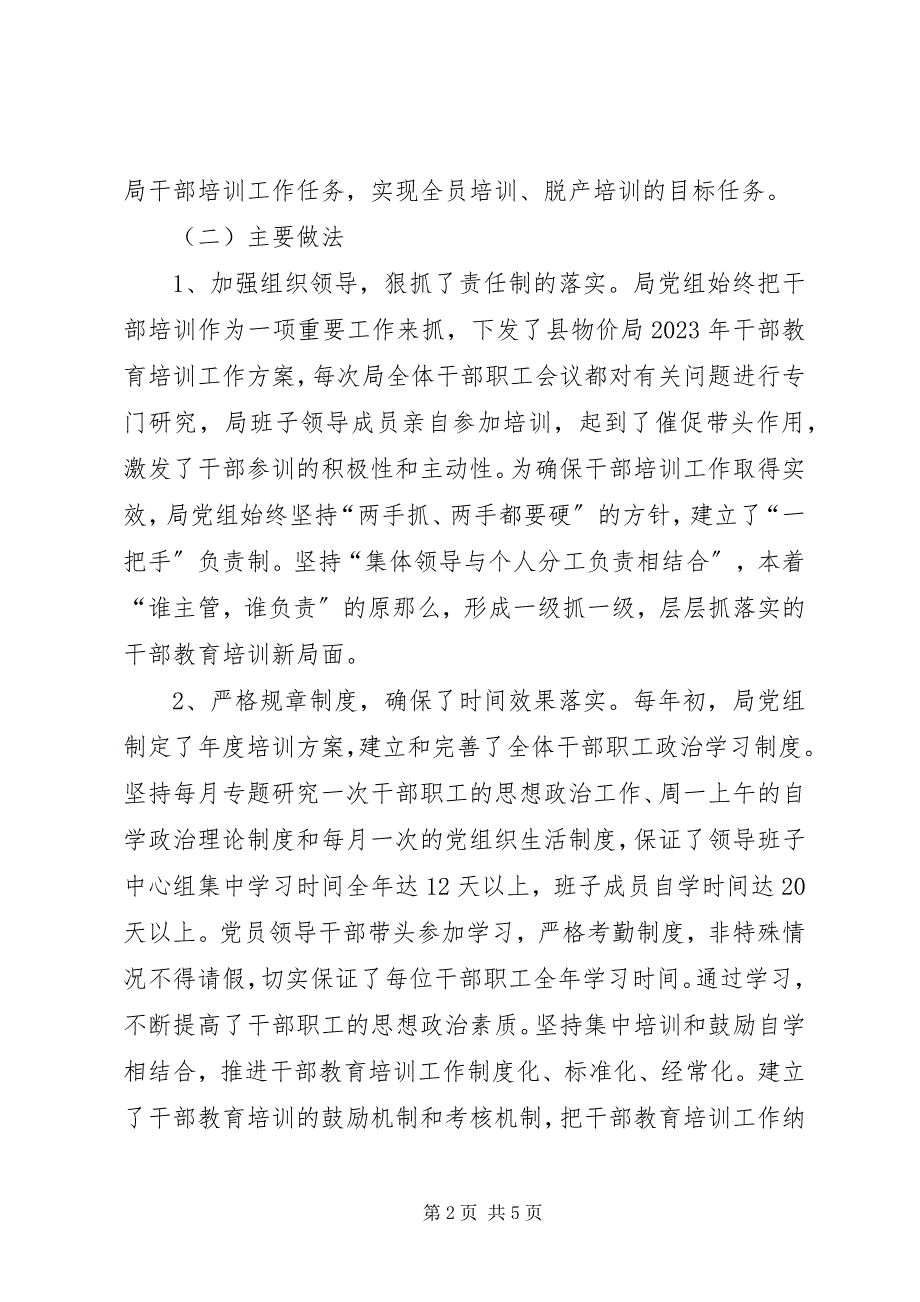 局干部培训工作任务，实现全员培训、脱产培训的目标任务。
（二）主要做法
1、加强组织领导，狠抓了责任制的落实。局党组始终把干
部培训作为一项重要工作来抓，下发了县物价局 2023 年干部教
育培训工作方案，每次局全体干部职工会议都对有关问题进行专
门研究，局班子领导成员亲自参加培训，起到了催促带头作用，
激发了干部参训的积极性和主动性。为确保干部培训工作取得实
效，局党组始终坚持“两手抓、两手都要硬〞的方针，建立了“一
把手〞负责制。坚持“集体领导与个人分工负责相结合〞，本着
“谁主管，谁负责〞的原那么，形成一级抓一级，层层抓落实的
干部教育培训新局面。
2、严格规章制度，确保了时间效果落实。每年初，局党组
制定了年度培训方案，建立和完善了全体干部职工政治学习制度。
坚持每月专题研究一次干部职工的思想政治工作、周一上午的自
学政治理论制度和每月一次的党组织生活制度，保证了领导班子
中心组集中学习时间全年达 12 天以上，班子成员自学时间达 20
天以上。党员领导干部带头参加学习，严格考勤制度，非特殊情
况不得请假，切实保证了每位干部职工全年学习时间。通过学习，
不断提高了干部职工的思想政治素质。坚持集中培训和鼓励自学
相结合，推进干部教育培训工作制度化、标准化、经常化。建立
了干部教育培训的鼓励机制和考核机制，把干部教育培训工作纳
第 2 页 共 5 页